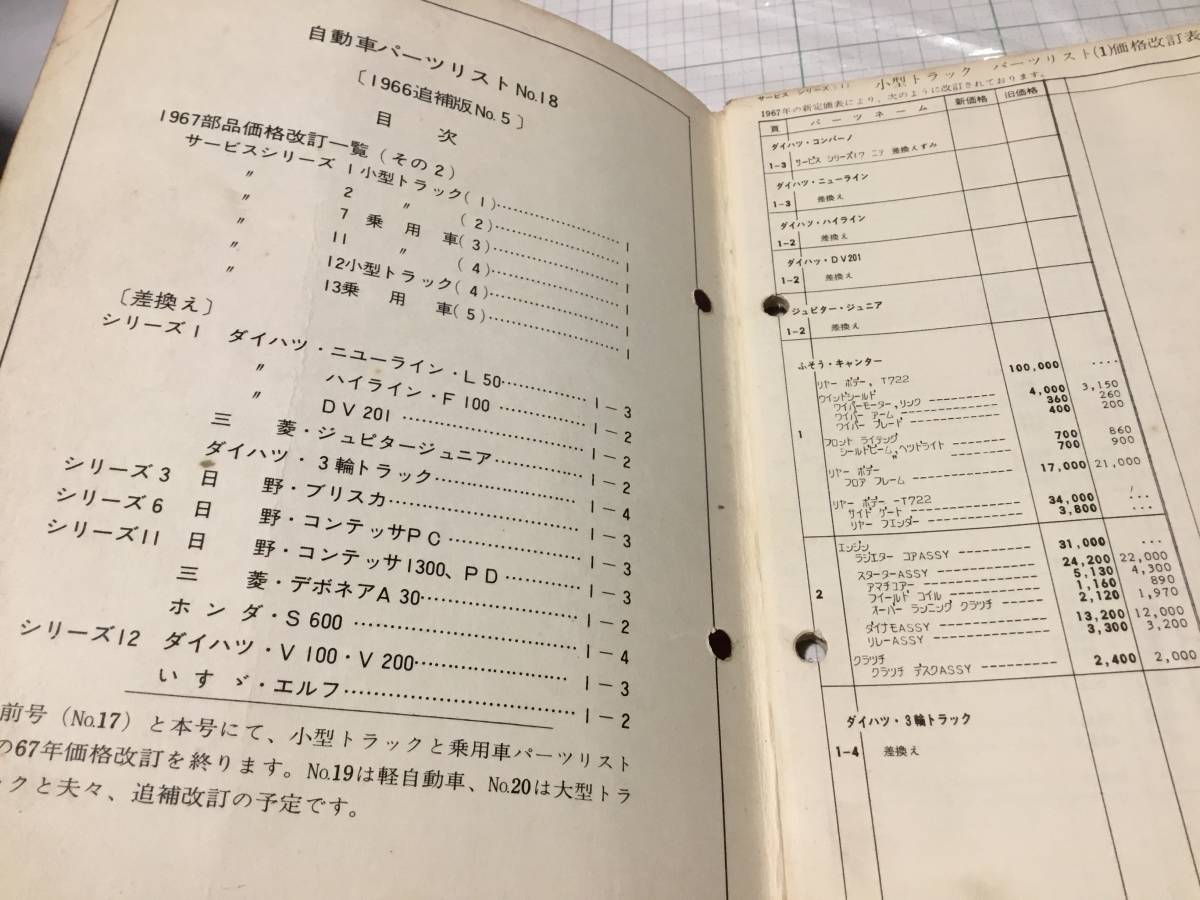 自動車パーツリスト No.18
〔1966追補版No.5〕
目 次
1967部品価格改訂一覧(その2)
サービスシリーズ 1 小型トラック(1)…………1
〃 2 〃 (2)…………1
〃 7 乗用車(3)…………1
〃 11 〃 (4)…………1
〃 12 小型トラック(4)…………1
〃 13 乗用車(5)…………1
〔差換え〕
シリーズ1 ダイハツ・ニューライン・L50…………1-3
〃 ハイライン・F100…………1-2
〃 DV201…………1-2
三菱・ジュピタージュニア…………1-2
ダイハツ・3輪トラック…………1-4
シリーズ3 日野・ブリスカ…………1-3
シリーズ6 日野・コンテッサPC…………1-3
シリーズ11 日野・コンテッサ1300、PD…………1-3
三菱・デボネアA30…………1-2
ホンダ・S600…………1-4
シリーズ12 ダイハツ・V100・V200…………1-3
いすゞ・エルフ…………1-2
前号(No.17)と本号にて、小型トラックと乗用車パーツリスト
の67年価格改訂を終ります。No.19は軽自動車、No.20は大型トラ
ックと夫々、追補改訂の予定です。
サービス シリーズ(1) 小型トラック パーツリスト(1)価格改訂表
1967年の新定価表により、次のように改訂されております。
頁 パーツネーム 新価格 旧価格
ダイハツ・コンパーノ
1-3 サービス シリーズ17 ニテ 差換えずみ
ダイハツ・ニューライン
1-3 差換え
ダイハツ・ハイライン
1-2 差換え
ダイハツ・DV201
1-2 差換え
ジュピター・ジュニア
1-2 差換え
ふそう・キャンター
1
リヤー ボデー, T722 100,000 ....
ウインドシールド
ワイパーモーター,リンク 4,000 3,150
ワイパー アーム 360 260
ワイパー ブレード 400 200
フロント ライテング
シールドビーム,ヘツドライト 700 860
〃 700 900
リヤー ボデー
フロア フレーム 17,000 21,000
リヤー ボデー -T722
サイド ゲート 34,000 ...
リヤー フエンダー 3,800 ...
2
エンジン
ラジエター コアASSY 31,000 ...
スターターASSY 24,200 22,000
アマチュアー 5,130 4,300
フイールド コイル 1,160 890
オーバー ランニング クラツチ 2,120 1,970
ダイナモASSY 13,200 12,000
リレーASSY 3,300 3,200
クラツチ
クラツチ デスクASSY 2,400 2,000
ダイハツ・3輪トラック
1-4 差換え